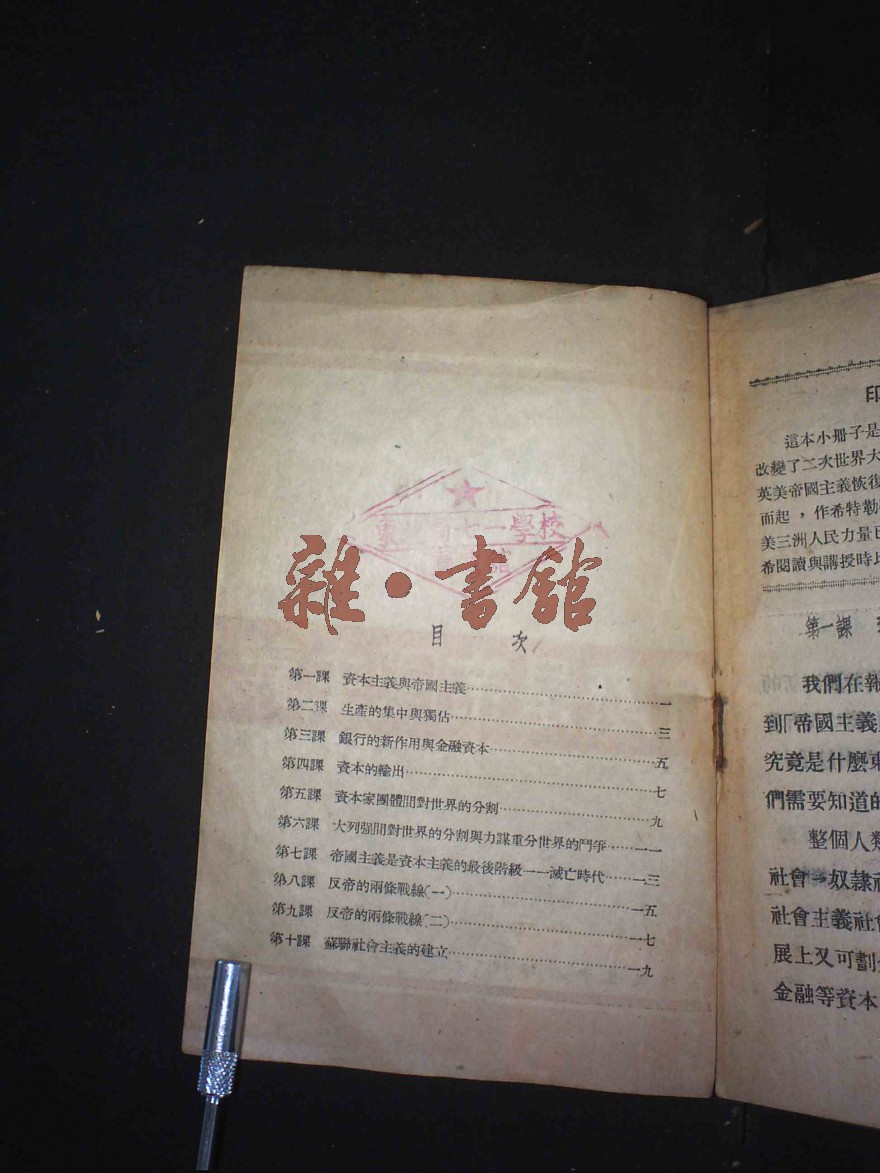 雜·書館
七一學校
目 次
第一課 資本主義與帝國主義……一
第二課 生產的集中與獨佔……三
第三課 銀行的新作用與金融資本……五
第四課 資本的輸出……七
第五課 資本家團體間對世界的分割……九
第六課 大列強間對世界的分割與力謀重分世界的鬥爭……一一
第七課 帝國主義是資本主義的最後階級——滅亡時代……一三
第八課 反帝的兩條戰線(一)……一五
第九課 反帝的兩條戰線(二)……一七
第十課 蘇聯社會主義的建立……一九
印
這本小冊子是
改變了二次世界大
英美帝國主義恢復
而起,作希特勒
美三洲人民力量已
希閱讀與講授時
第一課
我們在報
到「帝國主義
究竟是什麼東
們需要知道的
整個人類
社會—奴隸社
社會主義社會
展上又可劃分
金融等資本